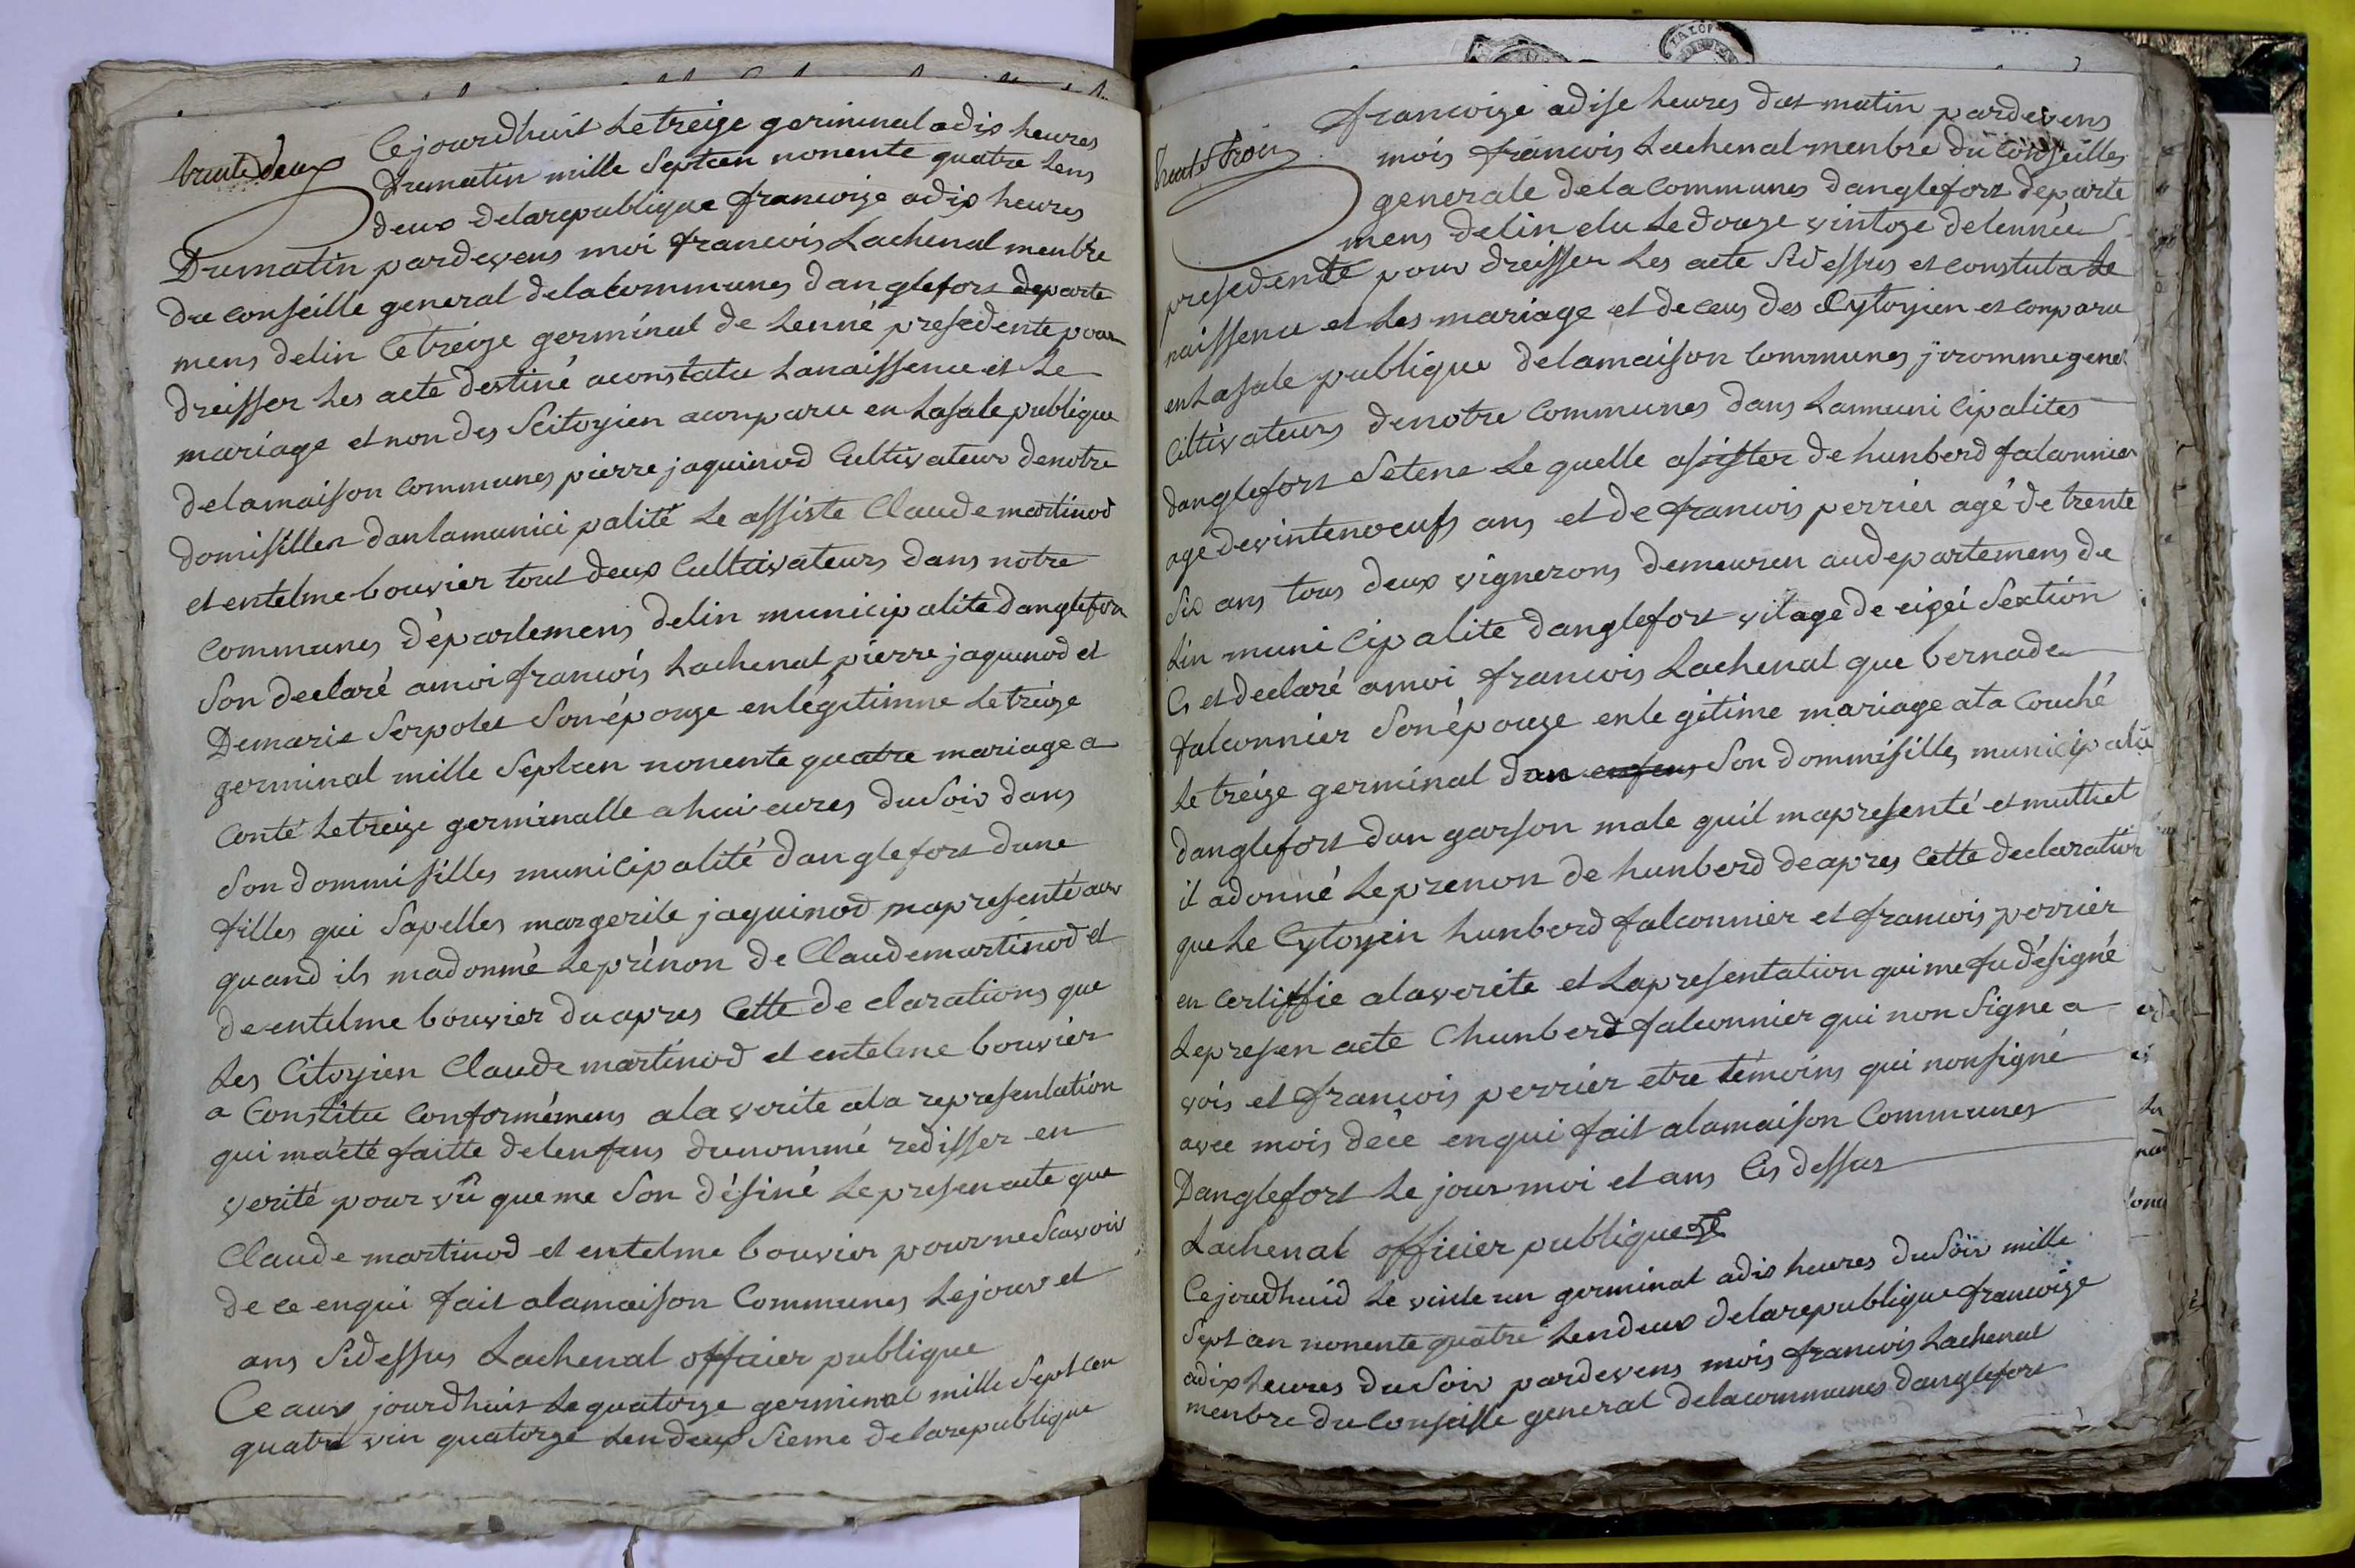 trente deux
Cejourdhuit Letreize germinal adix heures
dumatin mille Septcen nonente quatre Lens
deux delarepublique francoize adix heures
Dumatin pardevens moi francois Lachenal menbre
du conseille general delacommunes danglefort departe
mens delin Cetreize germinal de Lenné presedente pour
dreisser Les acte destiné aconstatu Lanaissence et Le
mariage et non des Scitoyien aconparu en Lasale publique
delamaison communes pierre jaquinod Cultivateur denotre
domisiller danlamunici palité Le assiste Claude martinod
et entelme bouvier tout deux Cultivateurs dans notre
Communes departemens delin municipalite danglefort
Son declaré amoi francois Lachenal pierre jaquinod et
Demarie Serpolet Son épouze enlégitimne Letreize
germinal mille Septcen nonente quatre mariage a
Conté Letreize germinalle ahuiveures duSoir dans
Son dommisilles municipalité danglefort dune
filles qui Sapelles margerite jaquinod mapresenté aux
quand ils madonné Leprénon de Claudemartinod et
de entelme bouvier duapres Cette declarations que
Les Citoyien Claude martinod et entelme bouvier
a Constitu Conformémens alaverite ala representation
qui maété faitte delenfens dunommé redisser en
verité pour vû queme Son désiné Lepresenacte que
Claude martinod et entelme bouvier pourneScavoir
de ce enqui fait alamaison Communes Lejour et
ans Sidessus Lachenal officier publique
Ceaux jourdhuit Lequatorze germinal mille Septcen
quatre vin quatorze Lendeux Sieme delarepublique
francoize adise heures dut matin pardevens
mois francois Lachenal menbre du Conseilles
generale delacommunes danglefort departe
mens delin elu Ledouze vintoze delennée
presedente pour dreisser Les acte Sidessus et constuta Le
naissence et Les mariage et deceus des Cytoyien et conparu
enLasale publique delamaison Communes jirommegenet
Ciltivateurs denotre Communes dans Lamunicipalites
danglefort Setene Le quelle asister de hunberd falconnier
age devintenoeufs ans et de francois perrier agé de trente
Six ans tous deux vignerons demeuren audepartemens de
Lin municipalite danglefort vilage de eigei Sextion
C, et declaré amoi francois Lachenal que bernade
falconnier Son épouze enle gitime mariage ata Couché
Le tréize germinal dun enfens Son dommisille, municipalite
danglefort dun garson male quil mapresenté et muttiet
il adonné Leprenon de hunberd deapres Cette declaration
que Le Cytoyin hunberd falconnier et francois perrier
en certiffie alaverite et Lapresentation quimefu désigné
Lepresen acte Chunberd falconnier qui non Signe a
vois et francois perrier etre témoins qui nonsigné
avec mois déce enqui fait alamaison Communes
Danglefort Le jour moi et ans Cis dessus
Lachenal officier publique
Cejourdhuid Le vinte un germinal adix heures duSoir mille
Septcen nonente quatre Lendeux delarepublique francoize
adix heures duSoir pardevens mois francois Lachenal
menbre du Conseille general delacommunes danglefort